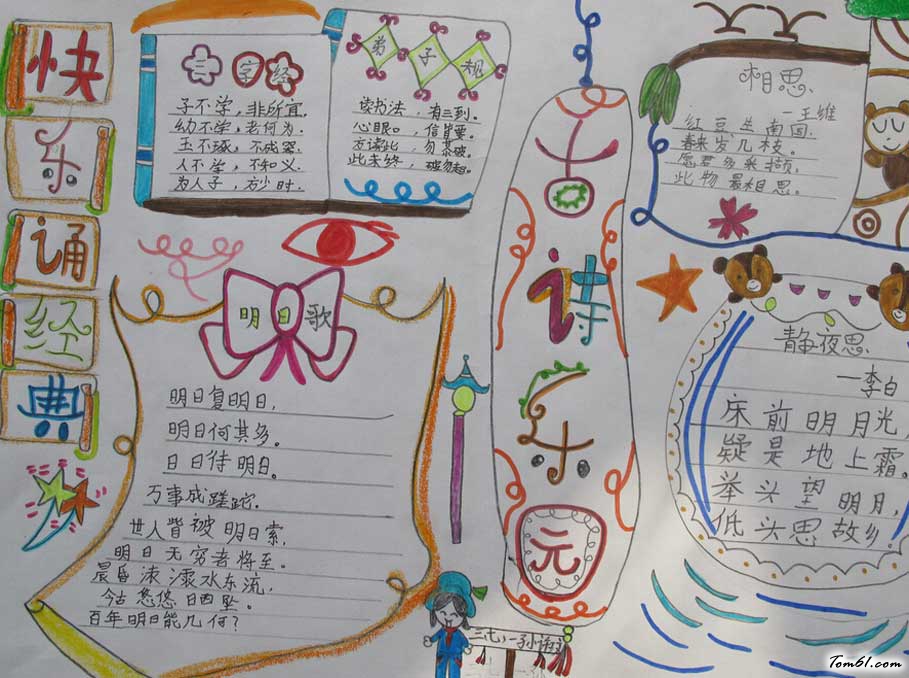 快
乐
诵
经
典
三字经
子不学，非所宜。
幼不学，老何为。
玉不琢，不成器。
人不学，不知义。
为人子，方少时。
弟子规
读书法，有三到。
心眼口，信皆重。
方读此，勿慕彼。
此未终，彼勿起。
明日歌
明日复明日，
明日何其多。
日日待明日。
万事成蹉跎。
世人皆被明日索，
明日无穷者将至。
晨昏滚滚水东流，
今古悠悠日西坠。
百年明日能几何？
古
诗
乐
元
相思
—王维
红豆生南国，
春来发几枝。
愿君多采撷，
此物最相思。
静夜思
—李白
床前明月光，
疑是地上霜。
举头望明月，
低头思故乡。
Tom61.com